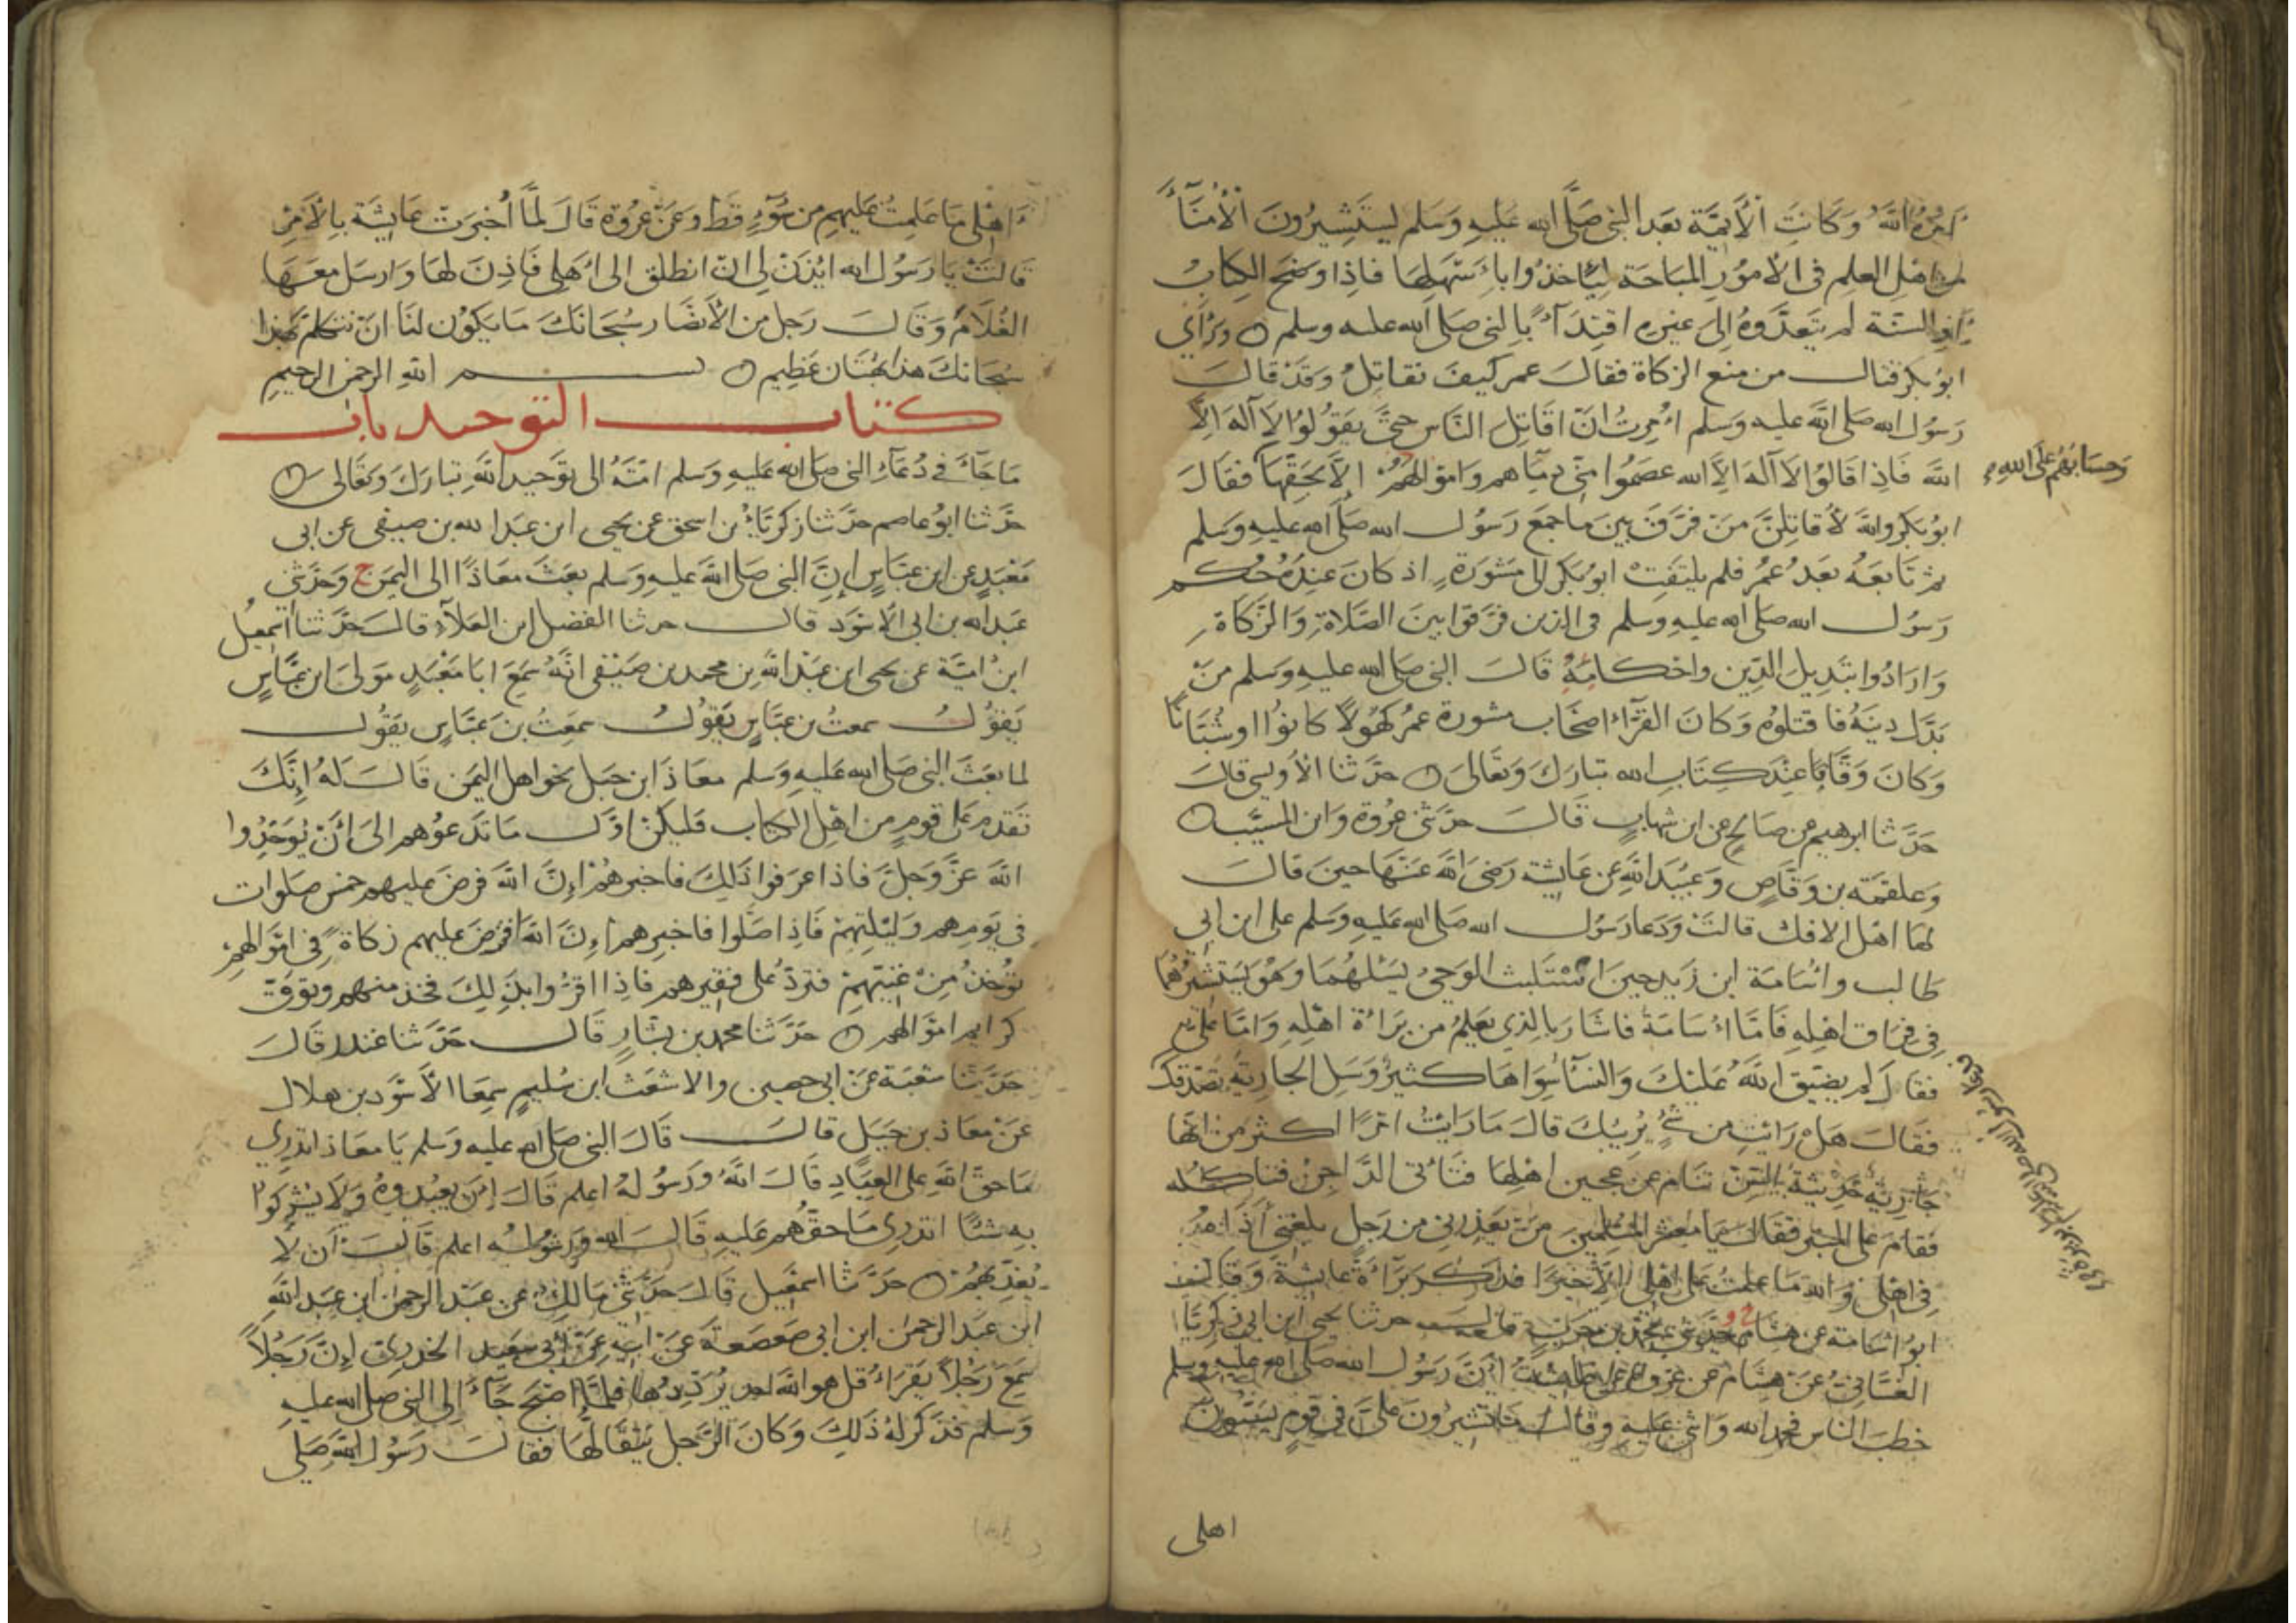 امره الله وكانت الأيمة بعد النبي صلى الله عليه وسلم ليستشيرون الأمنآء
من اهل العلم في الامور المباحة لياخذوا باسهلها فاذا وضح الكتاب
او السنة لم يتعدوه الى غيره اقتدآء بالنبي صلى الله عليه وسلم ورأي
ابو بكر قتال من منع الزكاة فقال عمر كيف نقاتل وقد قال
رسول الله صلى الله عليه وسلم امرت ان اقاتل الناس حتى يقولوا لا آله الا
الله فاذا قالوا لا آله الا الله عصموا مني دمآهم واموالهم الا بحقها فقال
وحسابهم على الله
ابو بكر والله لأقاتلن من فرق بين ما جمع رسول الله صلى الله عليه وسلم
ثم تابعه بعد عمر فلم يلتفت ابو بكر الى مشورة اذ كان عنده حكم
رسول الله صلى الله عليه وسلم في الذين فرقوا بين الصلاة والزكاة
وارادوا تبديل الدين واحكامه قال النبي صلى الله عليه وسلم من
بدل دينه فاقتلوه وكان القرآء اصحاب مشورة عمر كهولا كانوا او شبانا
وكان وقافا عند كتاب الله تبارك وتعالى حدثنا الأويسي قال
حدثنا ابرهيم عن صالح عن ابن شهاب قال حدثني عروة وابن المسيب
وعلقمة بن وقاص وعبيد الله عن عايشة رضي الله عنها حين قال
لها اهل الافك قالت ودعا رسول الله صلى الله عليه وسلم علي ابن ابي
طالب واسامة ابن زيد حين استلبث الوحي يسئلهما وهو يستشيرهما
في فراق اهله فاما اسامة فاشار بالذي يعلم من براءة اهله واما علي
فقال لم يضيق الله عليك والنسآء سواها كثير وسل الجارية تصدقك
فقال هل رايت من شئ يريبك قالت ما رايت امرا اكثر من انها
جارية حديثة السن تنام عن عجين اهلها فتأتي الداجن فتاكله
فقام على المنبر فقال يا معشر المسلمين من يعذرني من رجل بلغني أذاه
في اهلي والله ما علمت على اهلي الا خيرا فذكر برآءة عايشة وقال
ابو اسامة عن هشام ح وحدثني محمد بن حرب قال حدثنا يحيى ابن ابي زكريا
الغساني عن هشام عن عروة عن عايشة أن رسول الله صلى الله عليه وسلم
خطب الناس فحمد الله واثنى عليه وقال ما تشيرون علي في قوم يسبون
اهلي
اهلي ما علمت عليهم من سوء قط وعن عروة قال لما أخبرت عايشة بالأمر
قالت يا رسول الله ايذن لي ان انطلق الى اهلي فاذن لها وارسل معها
الغلام وقال رجل من الأنصار سبحانك ما يكون لنا ان نتكلم بهذا
سبحانك هذا بهتان عظيم بسم الله الرحمن الرحيم
كتاب التوحيد باب
ما جآء في دعآء النبي صلى الله عليه وسلم امته الى توحيد الله تبارك وتعالى
حدثنا ابو عاصم حدثنا زكريآء بن اسحق عن يحيى ابن عبد الله بن صيفي عن ابي
معبد عن ابن عباس إن النبي صلى الله عليه وسلم بعث معاذا الى اليمن ح وحدثني
عبد الله بن ابي الاسود قال حدثنا الفضل ابن العلآء قال حدثنا اسمعيل
ابن امية عن يحيى ابن عبد الله بن محمد بن صيفي انه سمع ابا معبد مولى ابن عباس
يقول سمعت بن عباس يقول سمعت بن عباس يقول
لما بعث النبي صلى الله عليه وسلم معاذ ابن جبل نحو اهل اليمن قال له إنك
تقدم على قوم من اهل الكتاب فليكن اول ما تدعوهم الى أن يوحدوا
الله عز وجل فاذا عرفوا ذلك فاخبرهم إن الله فرض عليهم خمس صلوات
في يومهم وليلتهم فاذا صلوا فاخبرهم إن الله افترض عليهم زكاة في اموالهم
تؤخذ من غنيهم فترد على فقيرهم فاذا اقروا بذلك فخذ منهم وتوق
كرايم اموالهم حدثنا محمد بن بشار قال حدثنا غندر قال
حدثنا شعبة عن ابي حصين والاشعث ابن سليم سمعا الأسود بن هلال
عن معاذ بن جبل قال قال النبي صلى الله عليه وسلم يا معاذ اتدري
ما حق الله على العباد قال الله ورسوله اعلم قال إن يعبدوه ولا يشركوا
به شئا اتدري ما حقهم عليه قال الله ورسوله اعلم قال أن لا
يعذبهم حدثنا اسمعيل قال حدثني مالك عن عبد الرحمن ابن عبد الله
ابن عبد الرحمن ابن ابي صعصعة عن ابيه عن أبي سعيد الخدري إن رجلا
سمع رجلا يقراء قل هو الله احد يرددها فلما اصبح جآء إلى النبي صلى الله عليه
وسلم فذكر له ذلك وكان الرجل يتقالها فقال رسول الله صلى